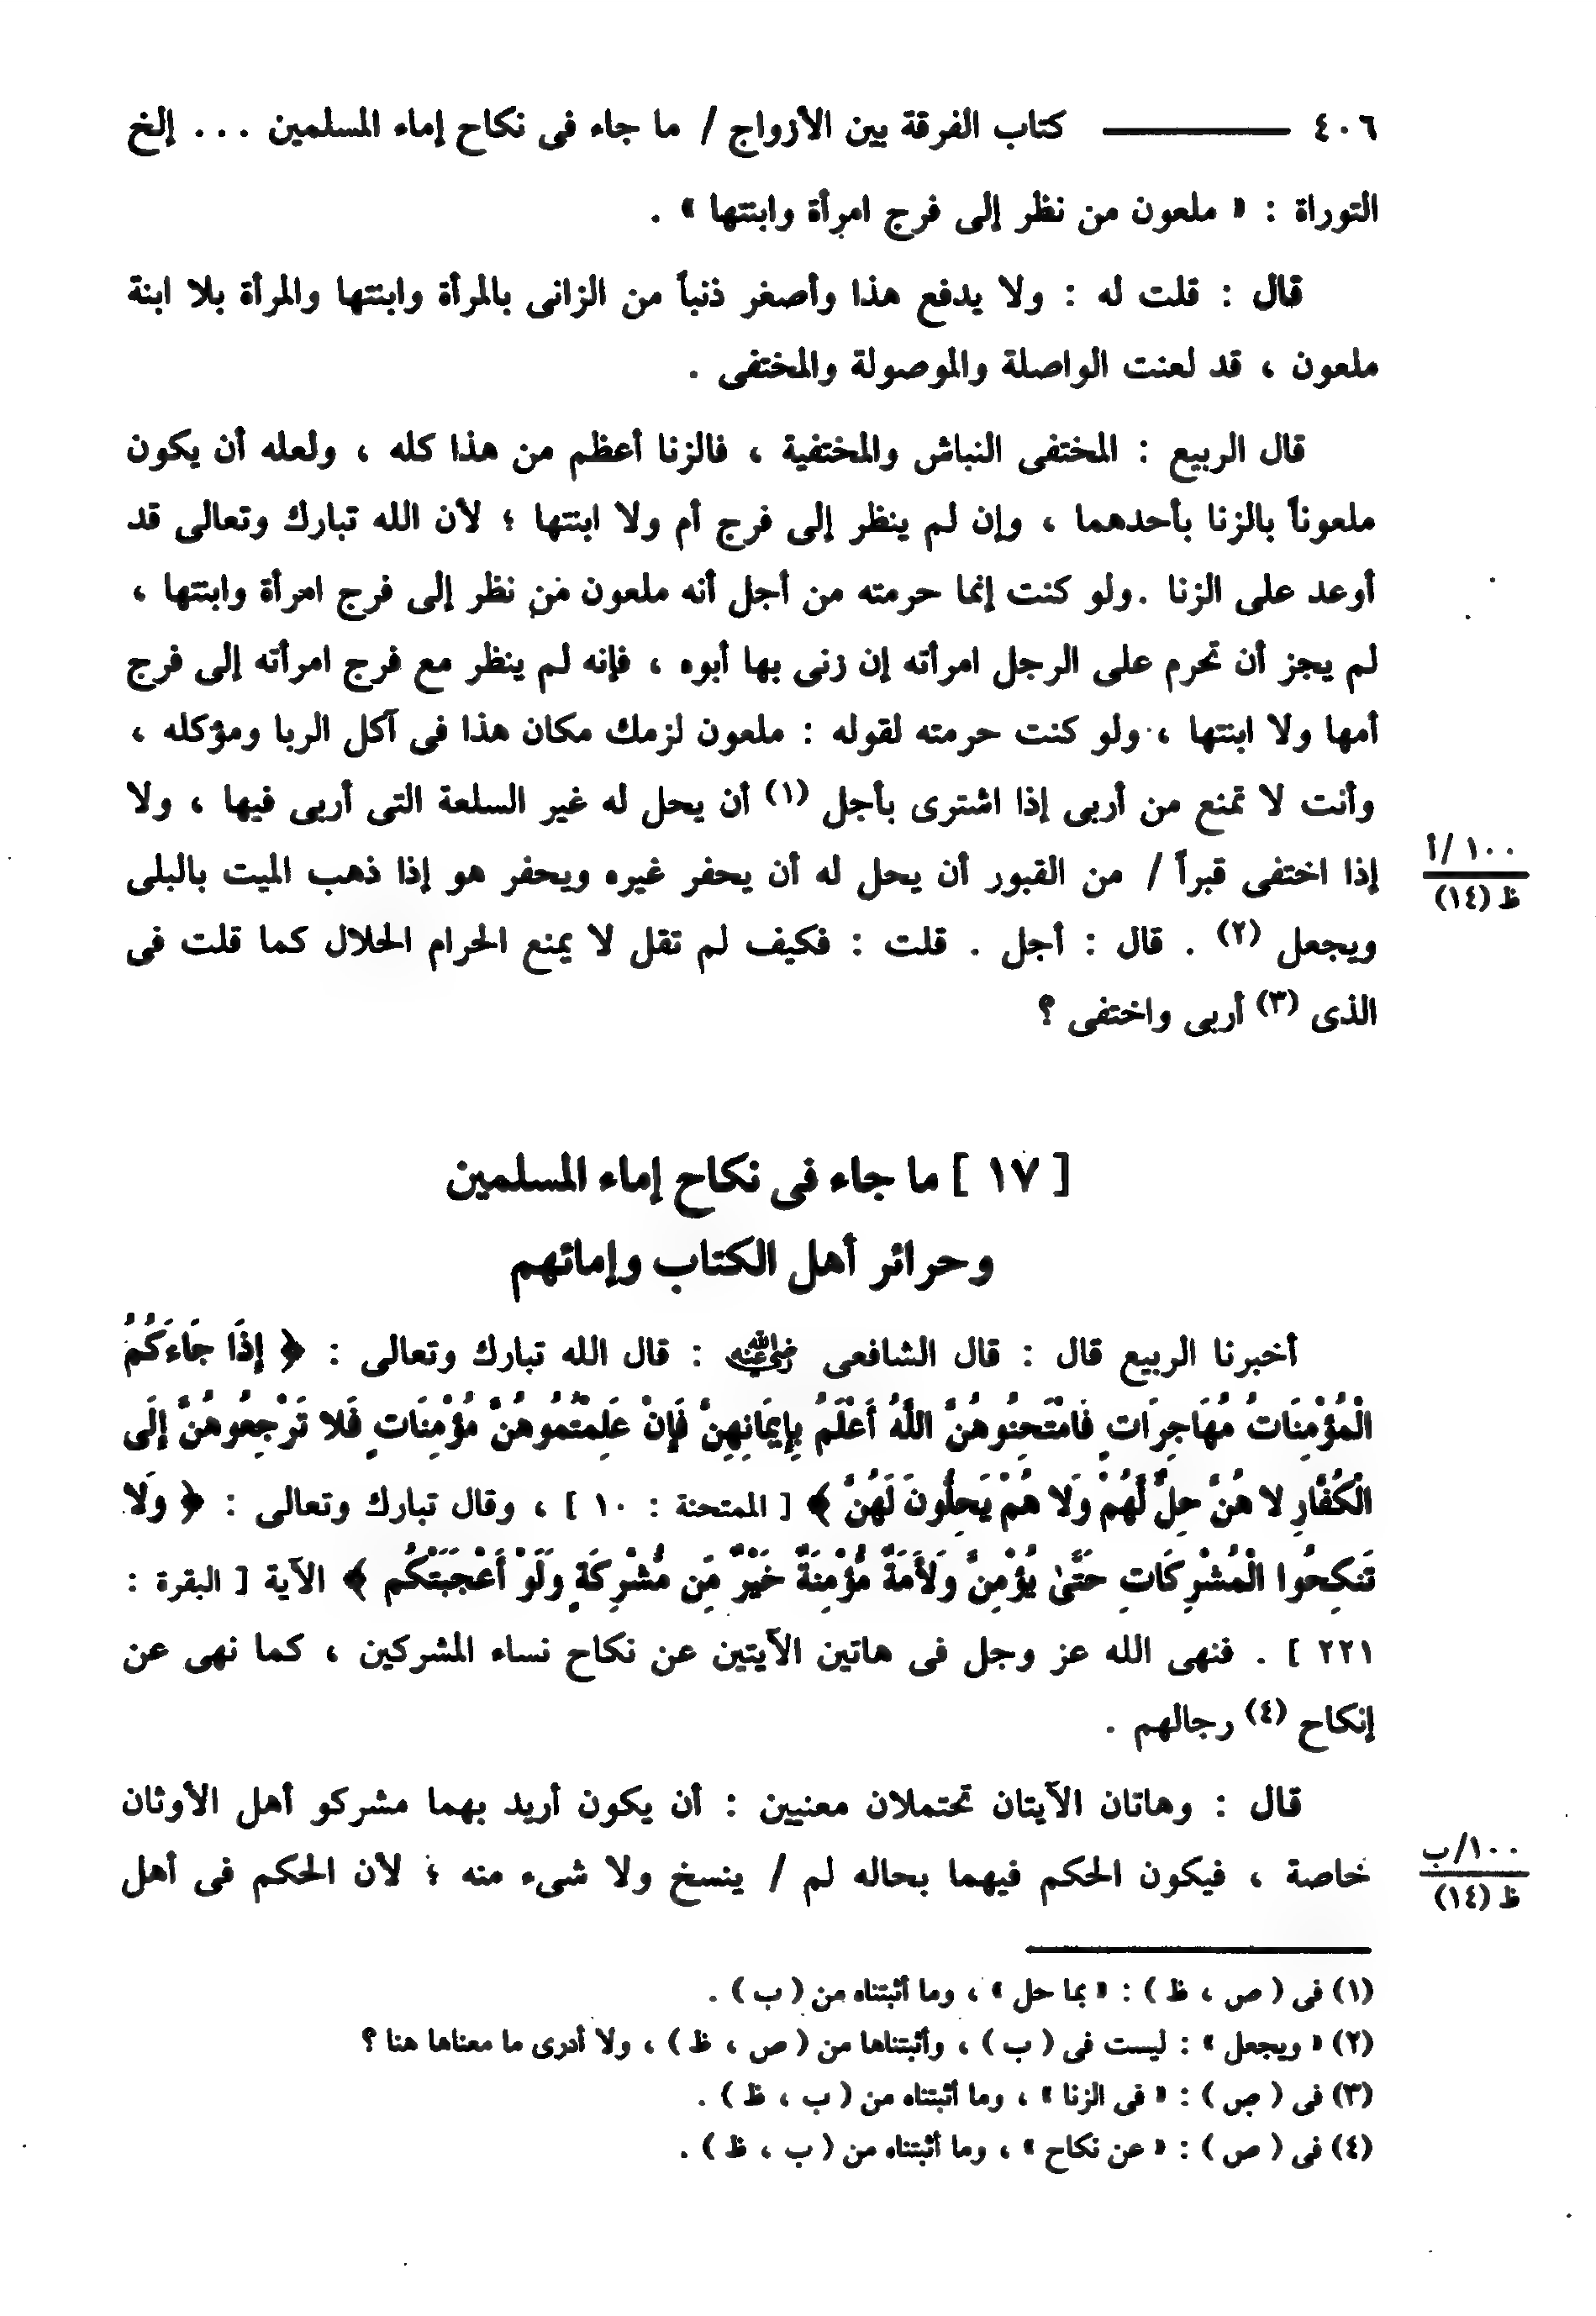 ٤٠٦ ــــــــــ كتاب الفرقة بين الأزواج / ما جاء فى نكاح إماء المسلمين . . . إلخ
التوراة : « ملعون من نظر إلى فرج امرأة وابنتها » .
قال : قلت له : ولا يدفع هذا وأصغر ذنباً من الزانى بالمرأة وابنتها والمرأة بلا ابنة
ملعون ، قد لعنت الواصلة والموصولة والمختفى .
قال الربيع : المختفى النباش والمختفية ، فالزنا أعظم من هذا كله ، ولعله أن يكون
ملعوناً بالزنا بأحدهما ، وإن لم ينظر إلى فرج أم ولا ابنتها ؛ لأن الله تبارك وتعالى قد
أوعد على الزنا . ولو كنت إنما حرمته من أجل أنه ملعون من نظر إلى فرج امرأة وابنتها ،
لم يجز أن تحرم على الرجل امرأته إن زنى بها أبوه ، فإنه لم ينظر مع فرج امرأته إلى فرج
أمها ولا ابنتها ، ولو كنت حرمته لقوله : ملعون لزمك مكان هذا فى آكل الربا ومؤكله ،
وأنت لا تمنع من أربى إذا اشترى بأجل (١) أن يحل له غير السلعة التى أربى فيها ، ولا
١٠٠/أ
ظ (١٤)
إذا اختفى قبراً / من القبور أن يحل له أن يحفر غيره ويحفر هو إذا ذهب الميت بالبلى
ويجعل (٢) . قال : أجل . قلت : فكيف لم تقل لا يمنع الحرام الحلال كما قلت فى
الذى (٣) أربى واختفى ؟
[ ١٧ ] ما جاء فى نكاح إماء المسلمين
وحرائر أهل الكتاب وإمائهم
أخبرنا الربيع قال : قال الشافعى رضي الله عنه : قال الله تبارك وتعالى : ﴿ إِذَا جَاءَكُمُ
الْمُؤْمِنَاتُ مُهَاجِرَاتٍ فَامْتَحِنُوهُنَّ اللَّهُ أَعْلَمُ بِإِيمَانِهِنَّ فَإِنْ عَلِمْتُمُوهُنَّ مُؤْمِنَاتٍ فَلا تَرْجِعُوهُنَّ إِلَى
الْكُفَّارِ لا هُنَّ حِلٌّ لَّهُمْ وَلا هُمْ يَحِلُّونَ لَهُنَّ ﴾ [ الممتحنة : ١٠ ] ، وقال تبارك وتعالى : ﴿ وَلا
تَنكِحُوا الْمُشْرِكَاتِ حَتَّىٰ يُؤْمِنَّ وَلأَمَةٌ مُّؤْمِنَةٌ خَيْرٌ مِّن مُّشْرِكَةٍ وَلَوْ أَعْجَبَتْكُم ﴾ الآية [ البقرة :
٢٢١ ] . فنهى الله عز وجل فى هاتين الآيتين عن نكاح نساء المشركين ، كما نهى عن
إنكاح (٤) رجالهم .
قال : وهاتان الآيتان تحتملان معنيين : أن يكون أريد بهما مشركو أهل الأوثان
١٠٠/ب
ظ (١٤)
خاصة ، فيكون الحكم فيهما بحاله لم / ينسخ ولا شىء منه ؛ لأن الحكم فى أهل
(١) فى ( ص ، ظ ) : « بما حل » ، وما أثبتناه من ( ب ) .
(٢) « ويجعل » : ليست فى ( ب ) ، وأثبتناها من ( ص ، ظ ) ، ولا أدرى ما معناها هنا ؟
(٣) فى ( ص ) : « فى الزنا » ، وما أثبتناه من ( ب ، ظ ) .
(٤) فى ( ص ) : « عن نكاح » ، وما أثبتناه من ( ب ، ظ ) .